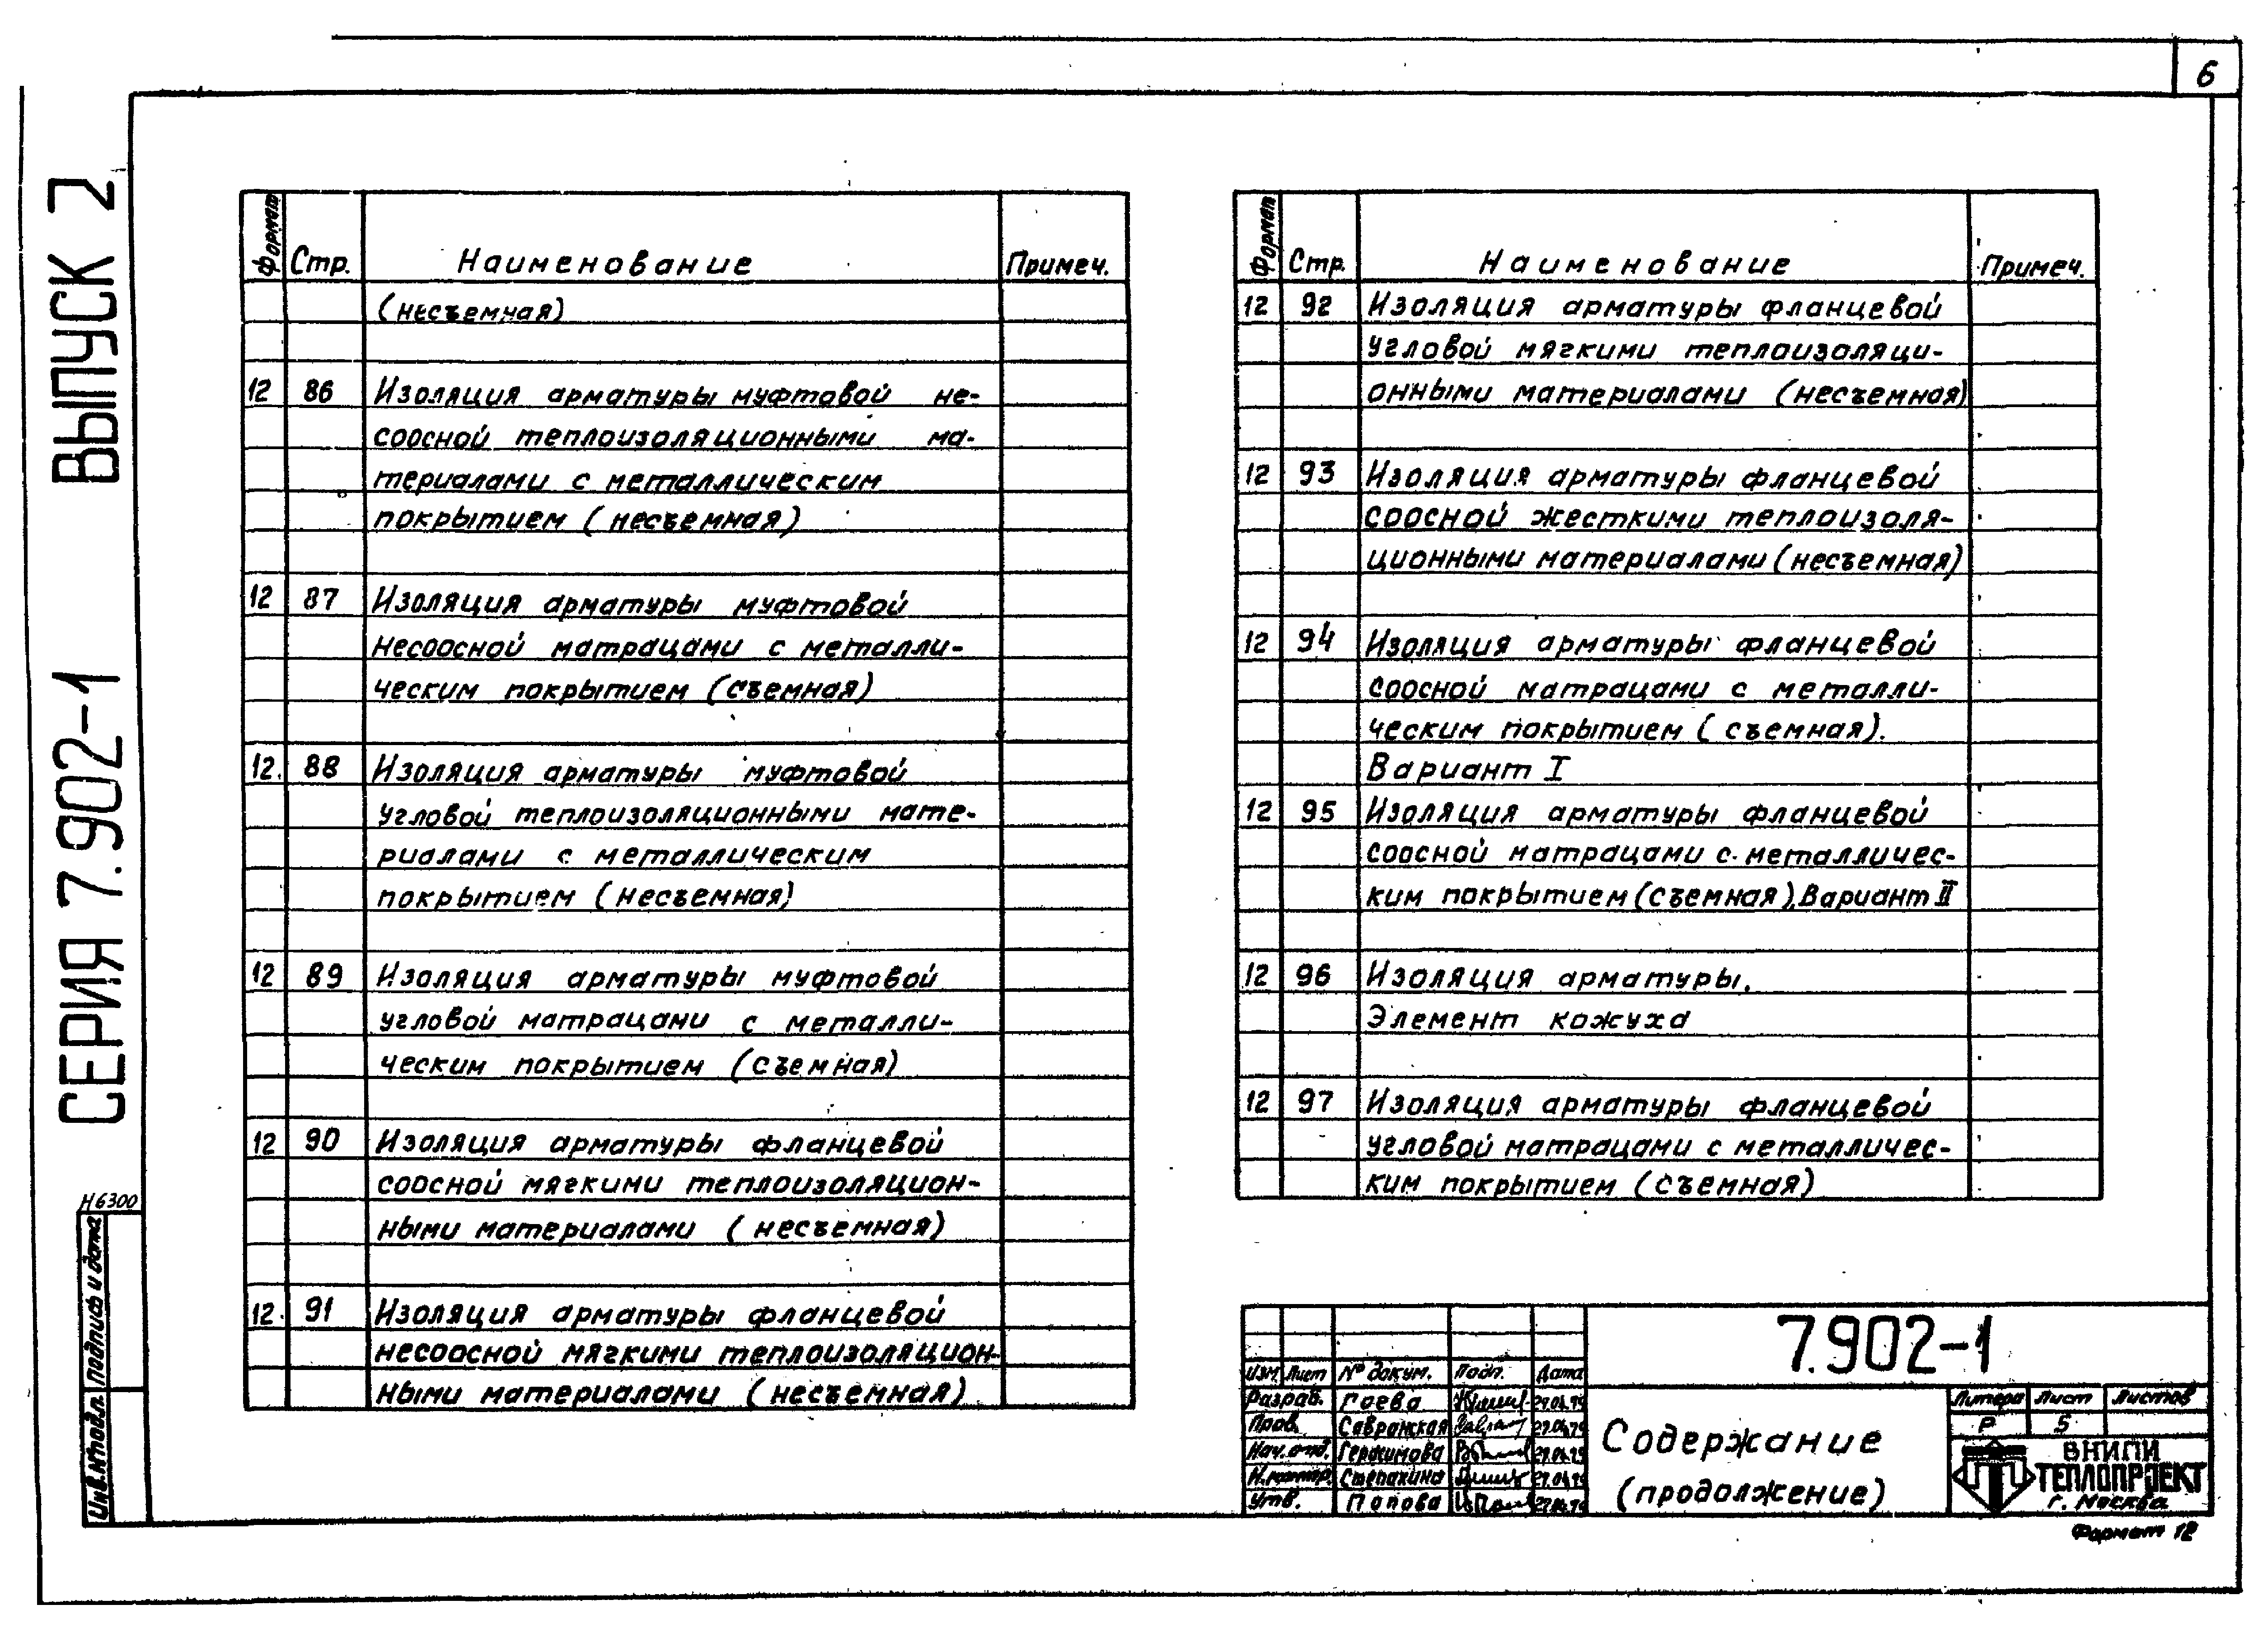 6
СЕРИЯ 7.902-1 ВЫПУСК 2
Формат Стр. Наименование Примеч.
(несъемная)
12 86 Изоляция арматуры муфтовой не-
соосной теплоизоляционными ма-
териалами с металлическим
покрытием (несъемная)
12 87 Изоляция арматуры муфтовой
несоосной матрацами с металли-
ческим покрытием (съемная)
12. 88 Изоляция арматуры муфтовой
угловой теплоизоляционными мате-
риалами с металлическим
покрытием (несъемная)
12 89 Изоляция арматуры муфтовой
угловой матрацами с металли-
ческим покрытием (съемная)
12 90 Изоляция арматуры фланцевой
соосной мягкими теплоизоляцион-
ными материалами (несъемная)
12. 91 Изоляция арматуры фланцевой
несоосной мягкими теплоизоляцион-
ными материалами (несъемная)
Формат Стр. Наименование Примеч.
12 92 Изоляция арматуры фланцевой
угловой мягкими теплоизоляци-
онными материалами (несъемная)
12 93 Изоляция арматуры фланцевой
соосной жесткими теплоизоля-
ционными материалами (несъемная)
12 94 Изоляция арматуры фланцевой
соосной матрацами с металли-
ческим покрытием (съемная).
Вариант I
12 95 Изоляция арматуры фланцевой
соосной матрацами с металличес-
ким покрытием (съемная). Вариант II
12 96 Изоляция арматуры.
Элемент кожуха
12 97 Изоляция арматуры фланцевой
угловой матрацами с металличес-
ким покрытием (съемная)
Н6300
Подпись и дата
Инв.№подл.
7.902-1
Изм. Лист № докум. Подп. Дата
Разраб. Гаева
Пров. Савранская
Нач.отд. Герасимова
Н.контр. Степанина
Утв. Попова
Содержание
(продолжение)
Литера Лист Листов
Р 5
ВНИПИ
ТЕПЛОПРОЕКТ
г. Москва
Формат 12